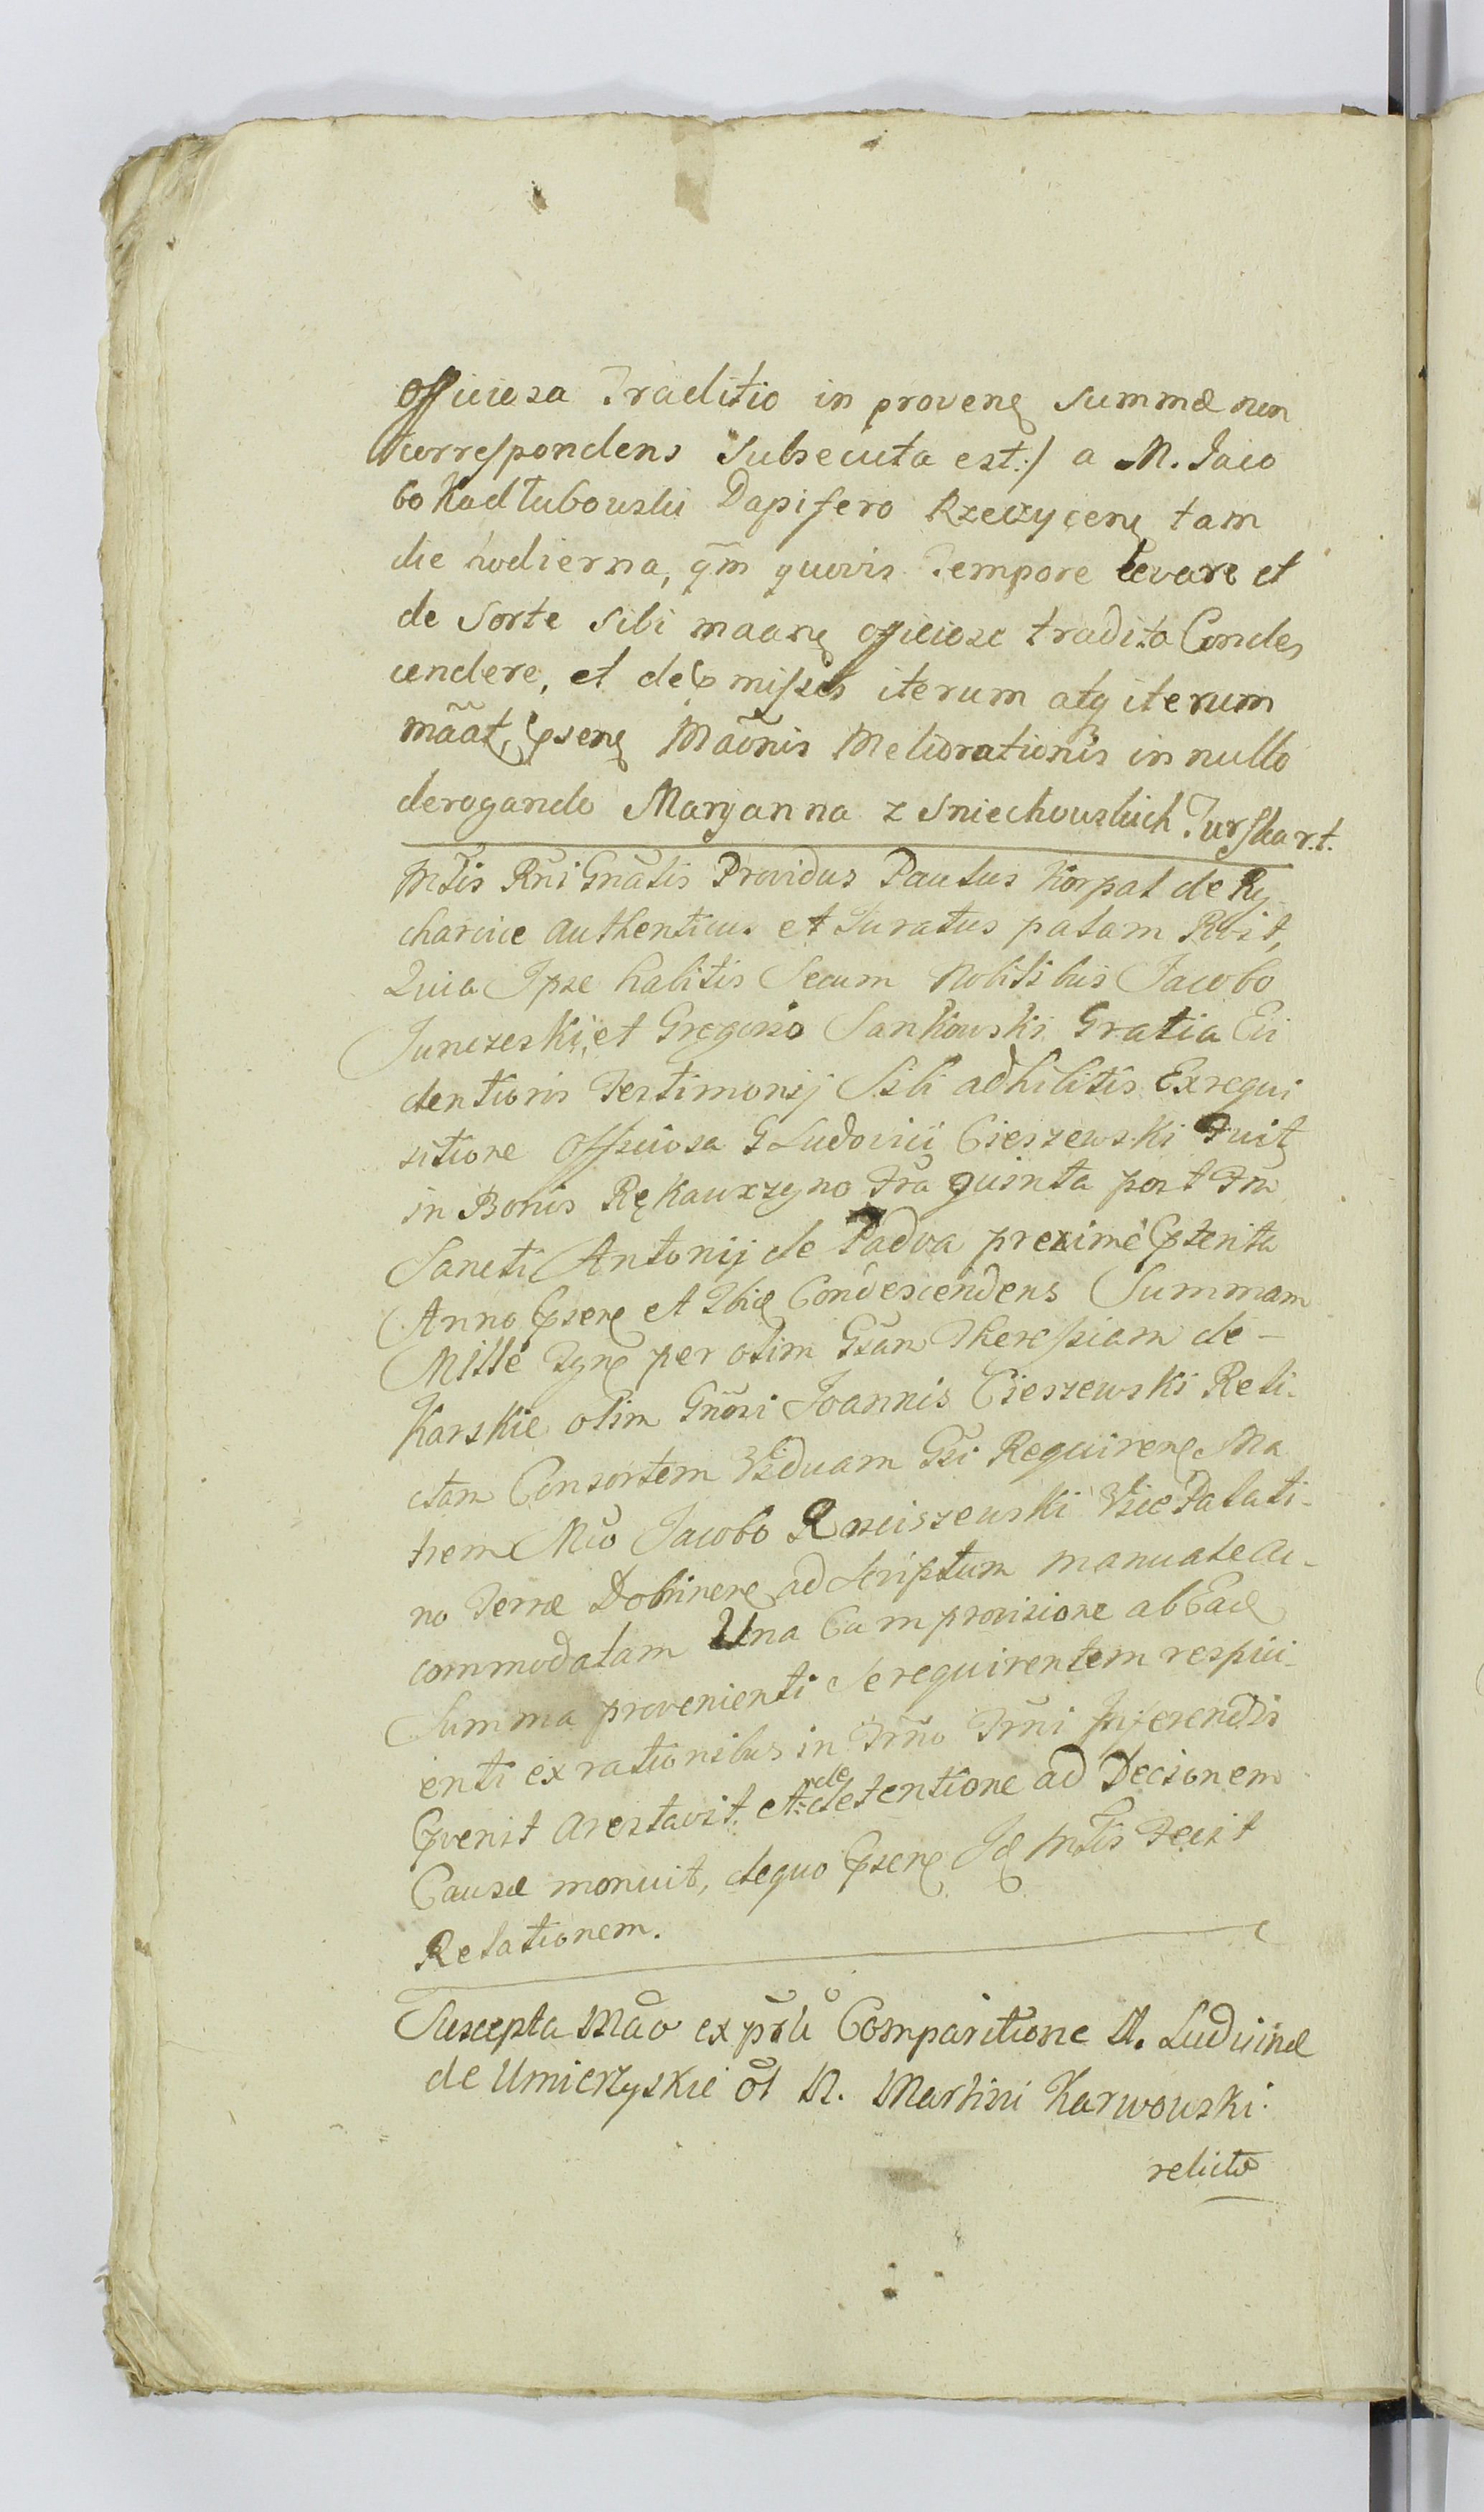 Officiosa Traditio in provenę Summæ non
correspondens Subsecuta est:/ a M. Jaco
bo Kadłubouski Dapifero Rzeczycenę tam
die hodierna, qm̃ quovis Tempore levare et
de Sorte Sibi maanę officiose tradita Condes
cendere, et de pmissis iterum atq iterum
mãat, psenę Maõnis Meliorationis in nullo
derogando Maryanna z Sniechouskich Turska r.t.
Mtis Rñi Gnãlis Providus Paulus Korpal de Ry
charcice Authenticus et Juratus palam Rbit,
Quia Ipse habitis Secum Nobilibus Jacobo
Junczeski, et Gregorio Sankowski Gratia Evi
dentioris Testimonij Sibi adhibitis Exrequi
sitione Officiosa G Ludovici Cieszewski Fuit
in Bonis Rękawczyno Fra quinta post Fm
Sancti Antonij de Padva proxime pterita
Anno psenę et Ibię Condescendens Summam
Mille Tynę per olim Gsam Theressiam de-
Karskie olim Gnosi Joannis Cieszewski Reli-
ctam Consortem Viduam Gsi Requirenę Ma
trem Mco Jacobo Rosciszewski Vice Palati-
no Terræ Dobrinenę ad Scriptum manuale Ac-
commodatam Una Cum provisione ab Eadę
Summa provenienti Se requirentem respici-
enti ex rationibus in Trño Trñi Inferendis
pvenit Arestavit. et de detentione ad Decisionem
Causæ monuit, de quo psenę Idę Mtis Fecit
Relationem.
Suscepta Mão ex pr̃li Comparitione M. Ludvinæ
de Umierzyskie ol M. Martini Karwowski
relictæ